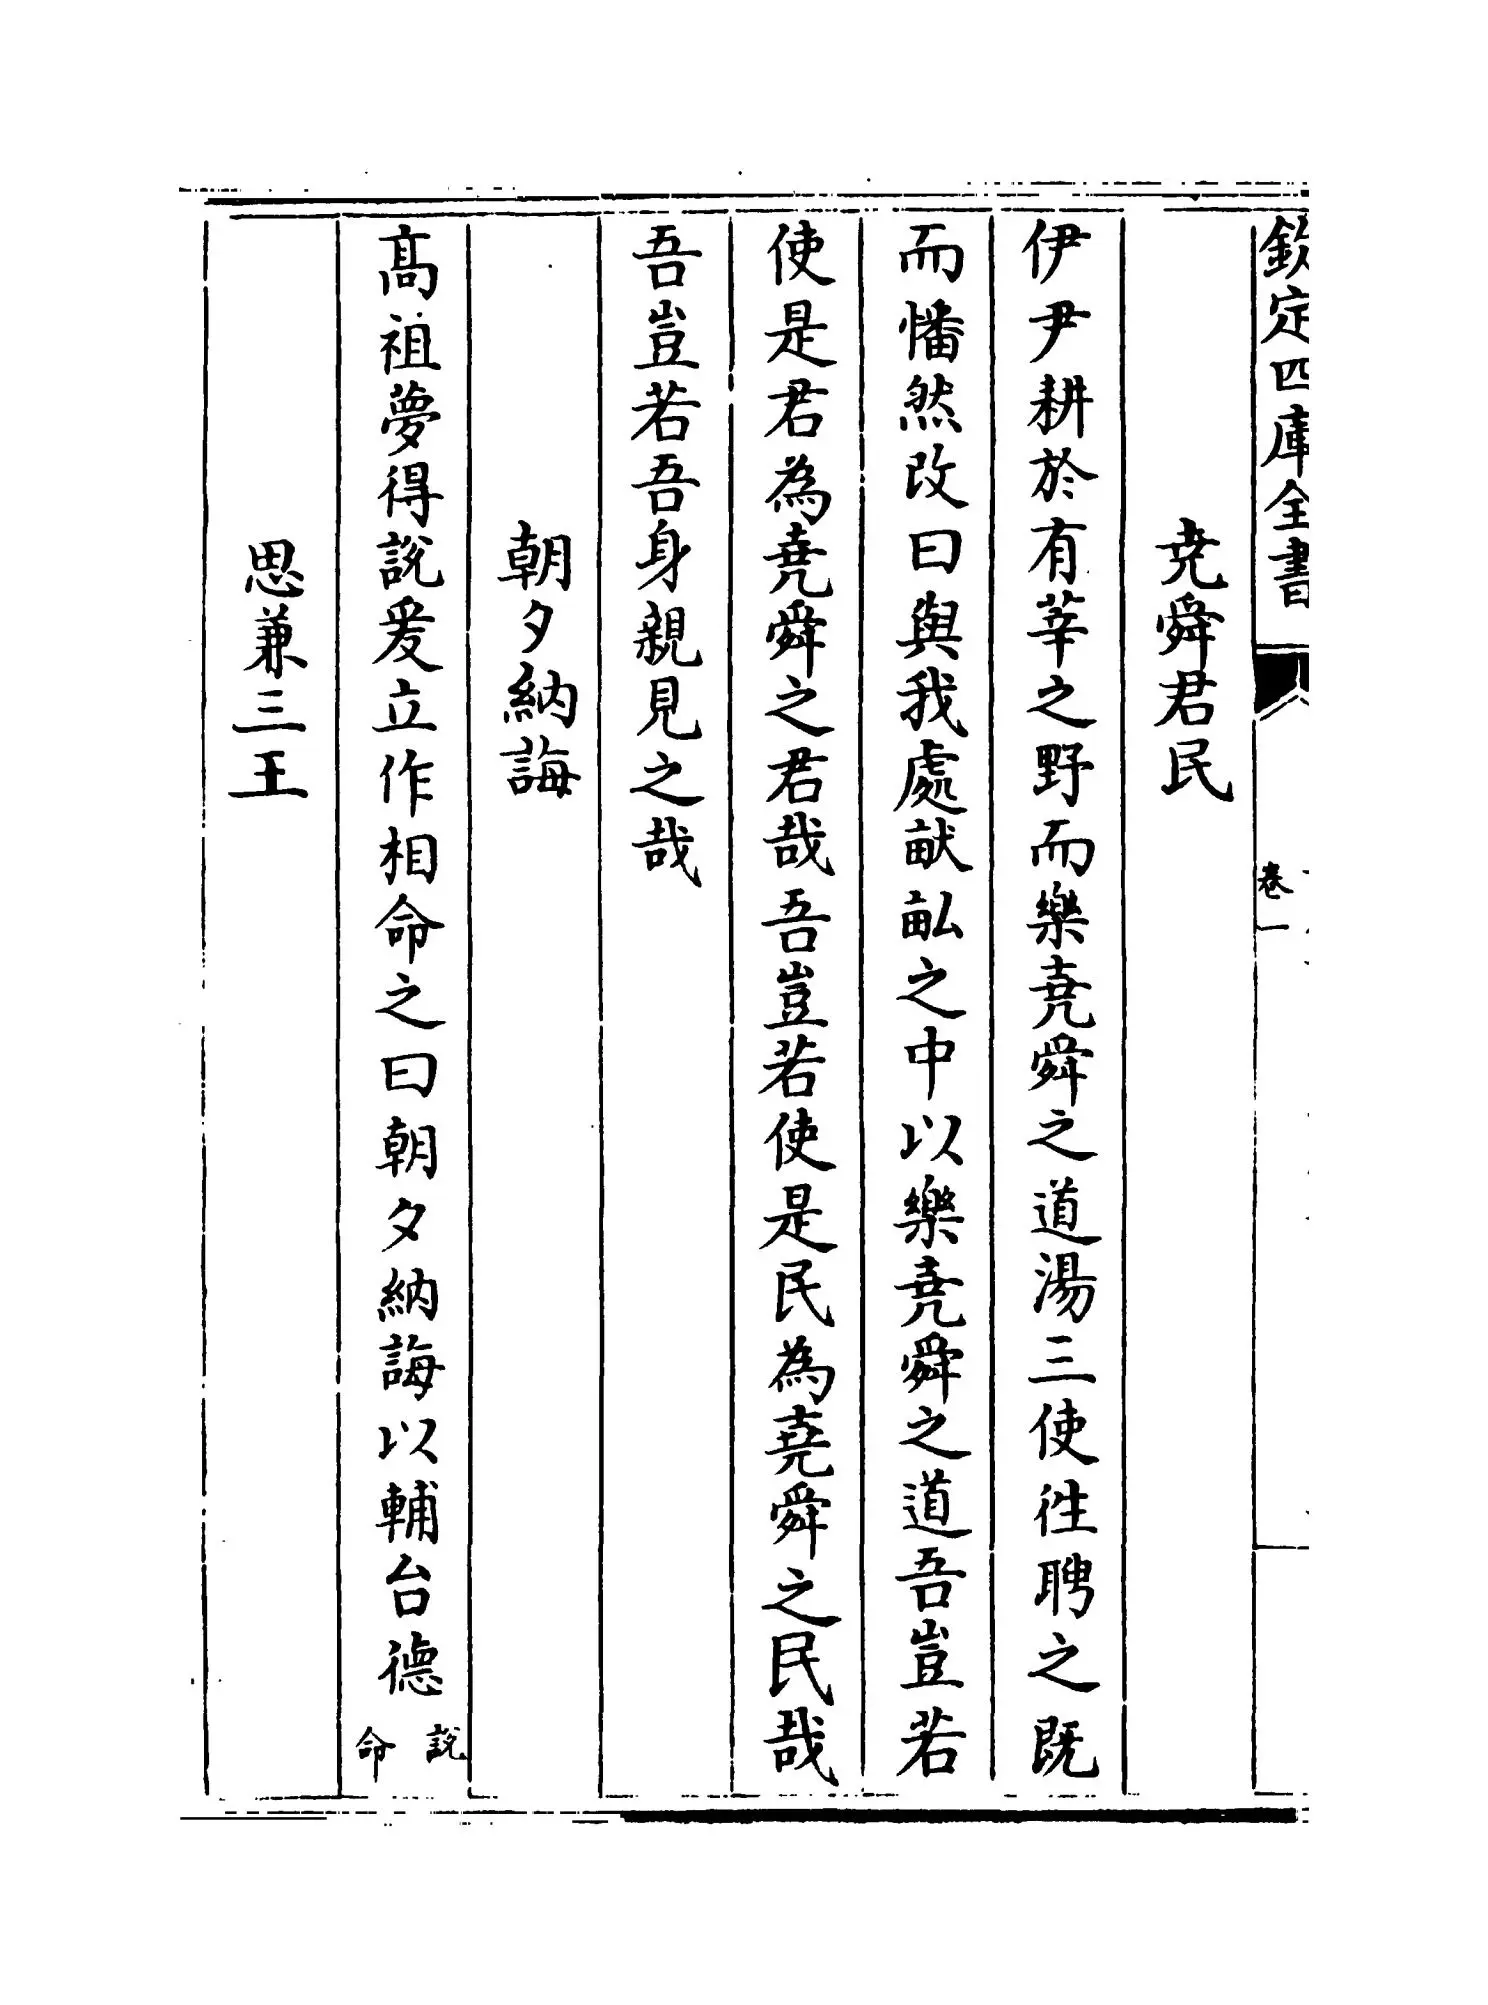 欽定四庫全書 卷一
堯舜君民
伊尹耕於有莘之野而樂堯舜之道湯三使徃聘之既
而憣然改曰與我處畎畆之中以樂堯舜之道吾豈若
使是君為堯舜之君哉吾豈若使是民為堯舜之民哉
吾豈若吾身親見之哉
朝夕納誨
髙祖夢得說爰立作相命之曰朝夕納誨以輔台德說命
思兼三王